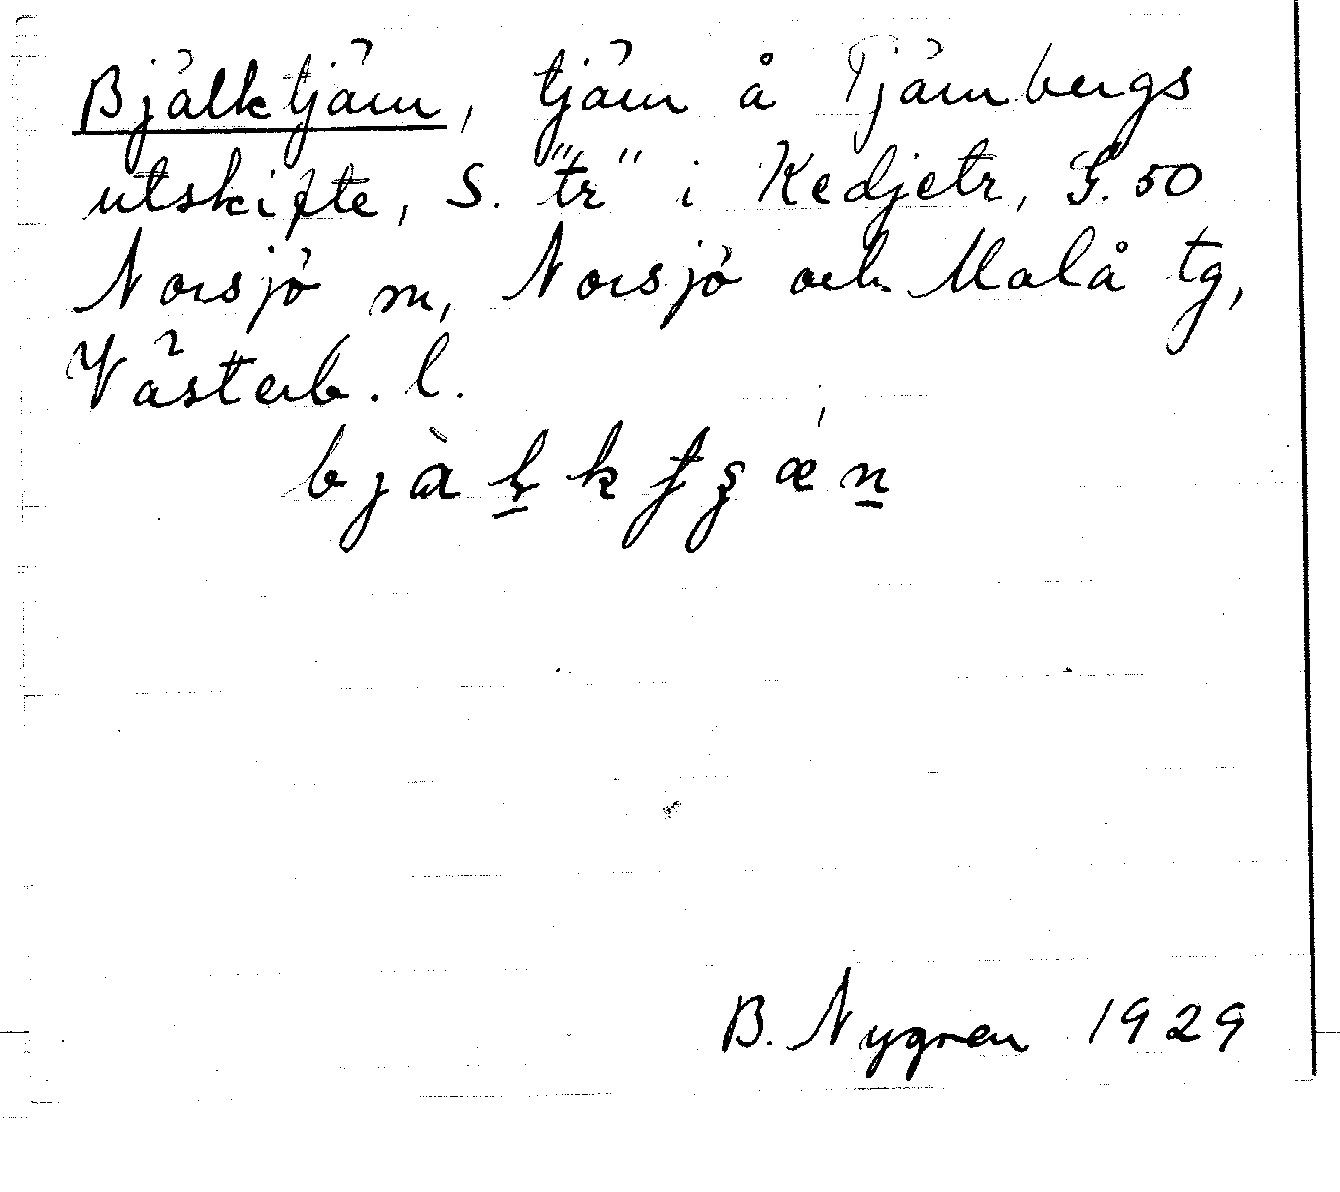 Bjälktjärn, tjärn å Tjärnbergs
utskifte, S. "tr" i Kedjetr, S. 50
Norsjö sn, Norsjö och Malå tg,
Västerb. l.
B. Nygren 1929